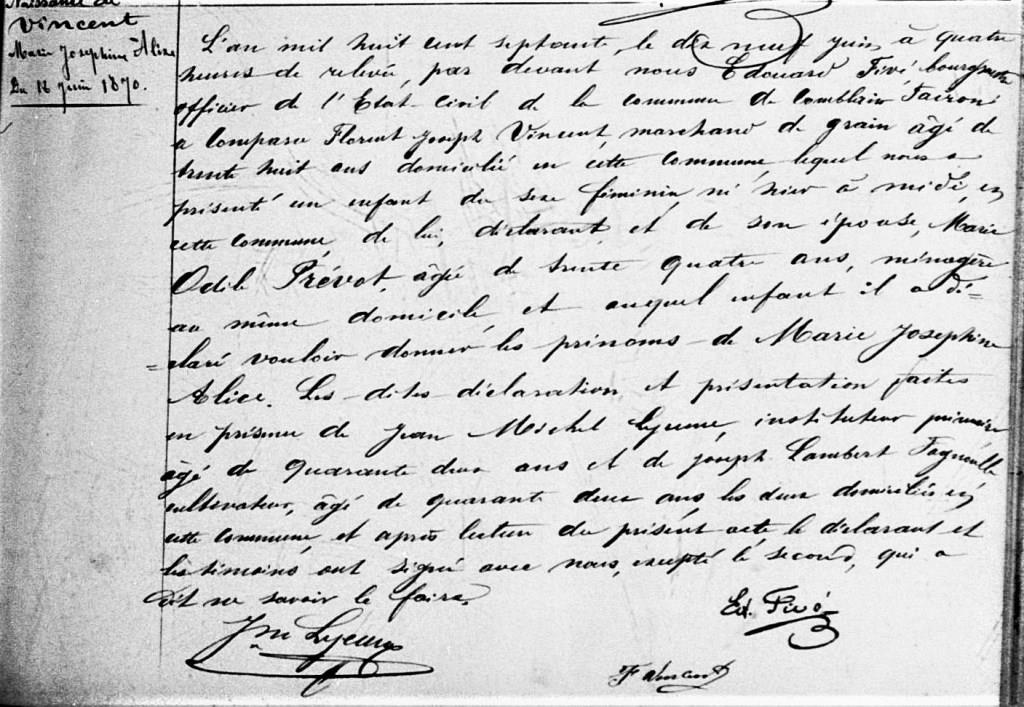 Naissance de
Vincent
Marie Josephine Alice
Du 18 Juin 1870.
L'an mil huit cent septante, le dix neuf juin, à quatre
heures de relevée, par devant nous Edouard Fivé bourgmestre
officier de l'Etat-civil de la commune de Comblain Fairon
a comparu Florent Joseph Vincent, marchand de grain âgé de
trente huit ans domicilié en cette commune lequel nous a
présenté un enfant du sexe féminin, né hier à midi, en
cette commune, de lui, déclarant, et de son épouse, Marie
Odile Prévot, âgée de trente quatre ans, ménagère
au même domicile, et auquel enfant il a dé=
=claré vouloir donner les prénoms de Marie Josephine
Alice. Les dites déclaration et présentation faites
en présence de Jean Michel Lejeune, instituteur primaire
âgé de quarante deux ans et de Joseph Lambert Fagnoulle
cultivateur, âgé de quarante deux ans les deux domiciliés en
cette commune, et après lecture du présent acte le déclarant et
les témoins ont signé avec nous, excepté le second, qui a
dit ne savoir le faire.
Ed. Fivé
J M Lejeune
F Vincent